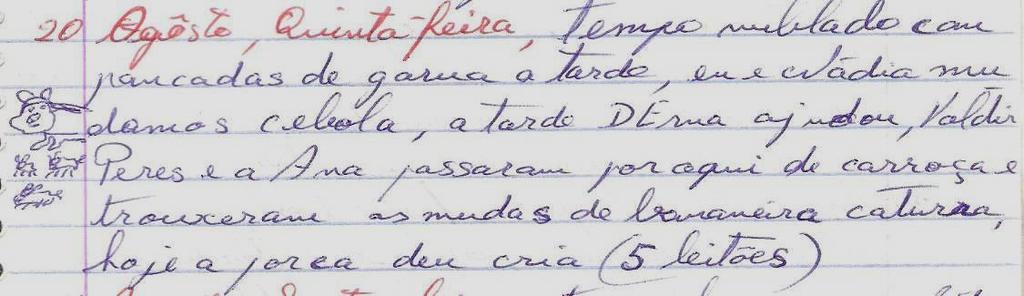 20 Agôsto, Quinta-feira, tempo nublado com
pancadas de garua a tarde, eu e Nádia mu
damos cebola, a tarde DEma ajudou, Valdir
Peres e a Ana passaram por aqui de carroça e
trouxeram as mudas de bananeira caturra,
hoje a porca deu cria (5 leitões)